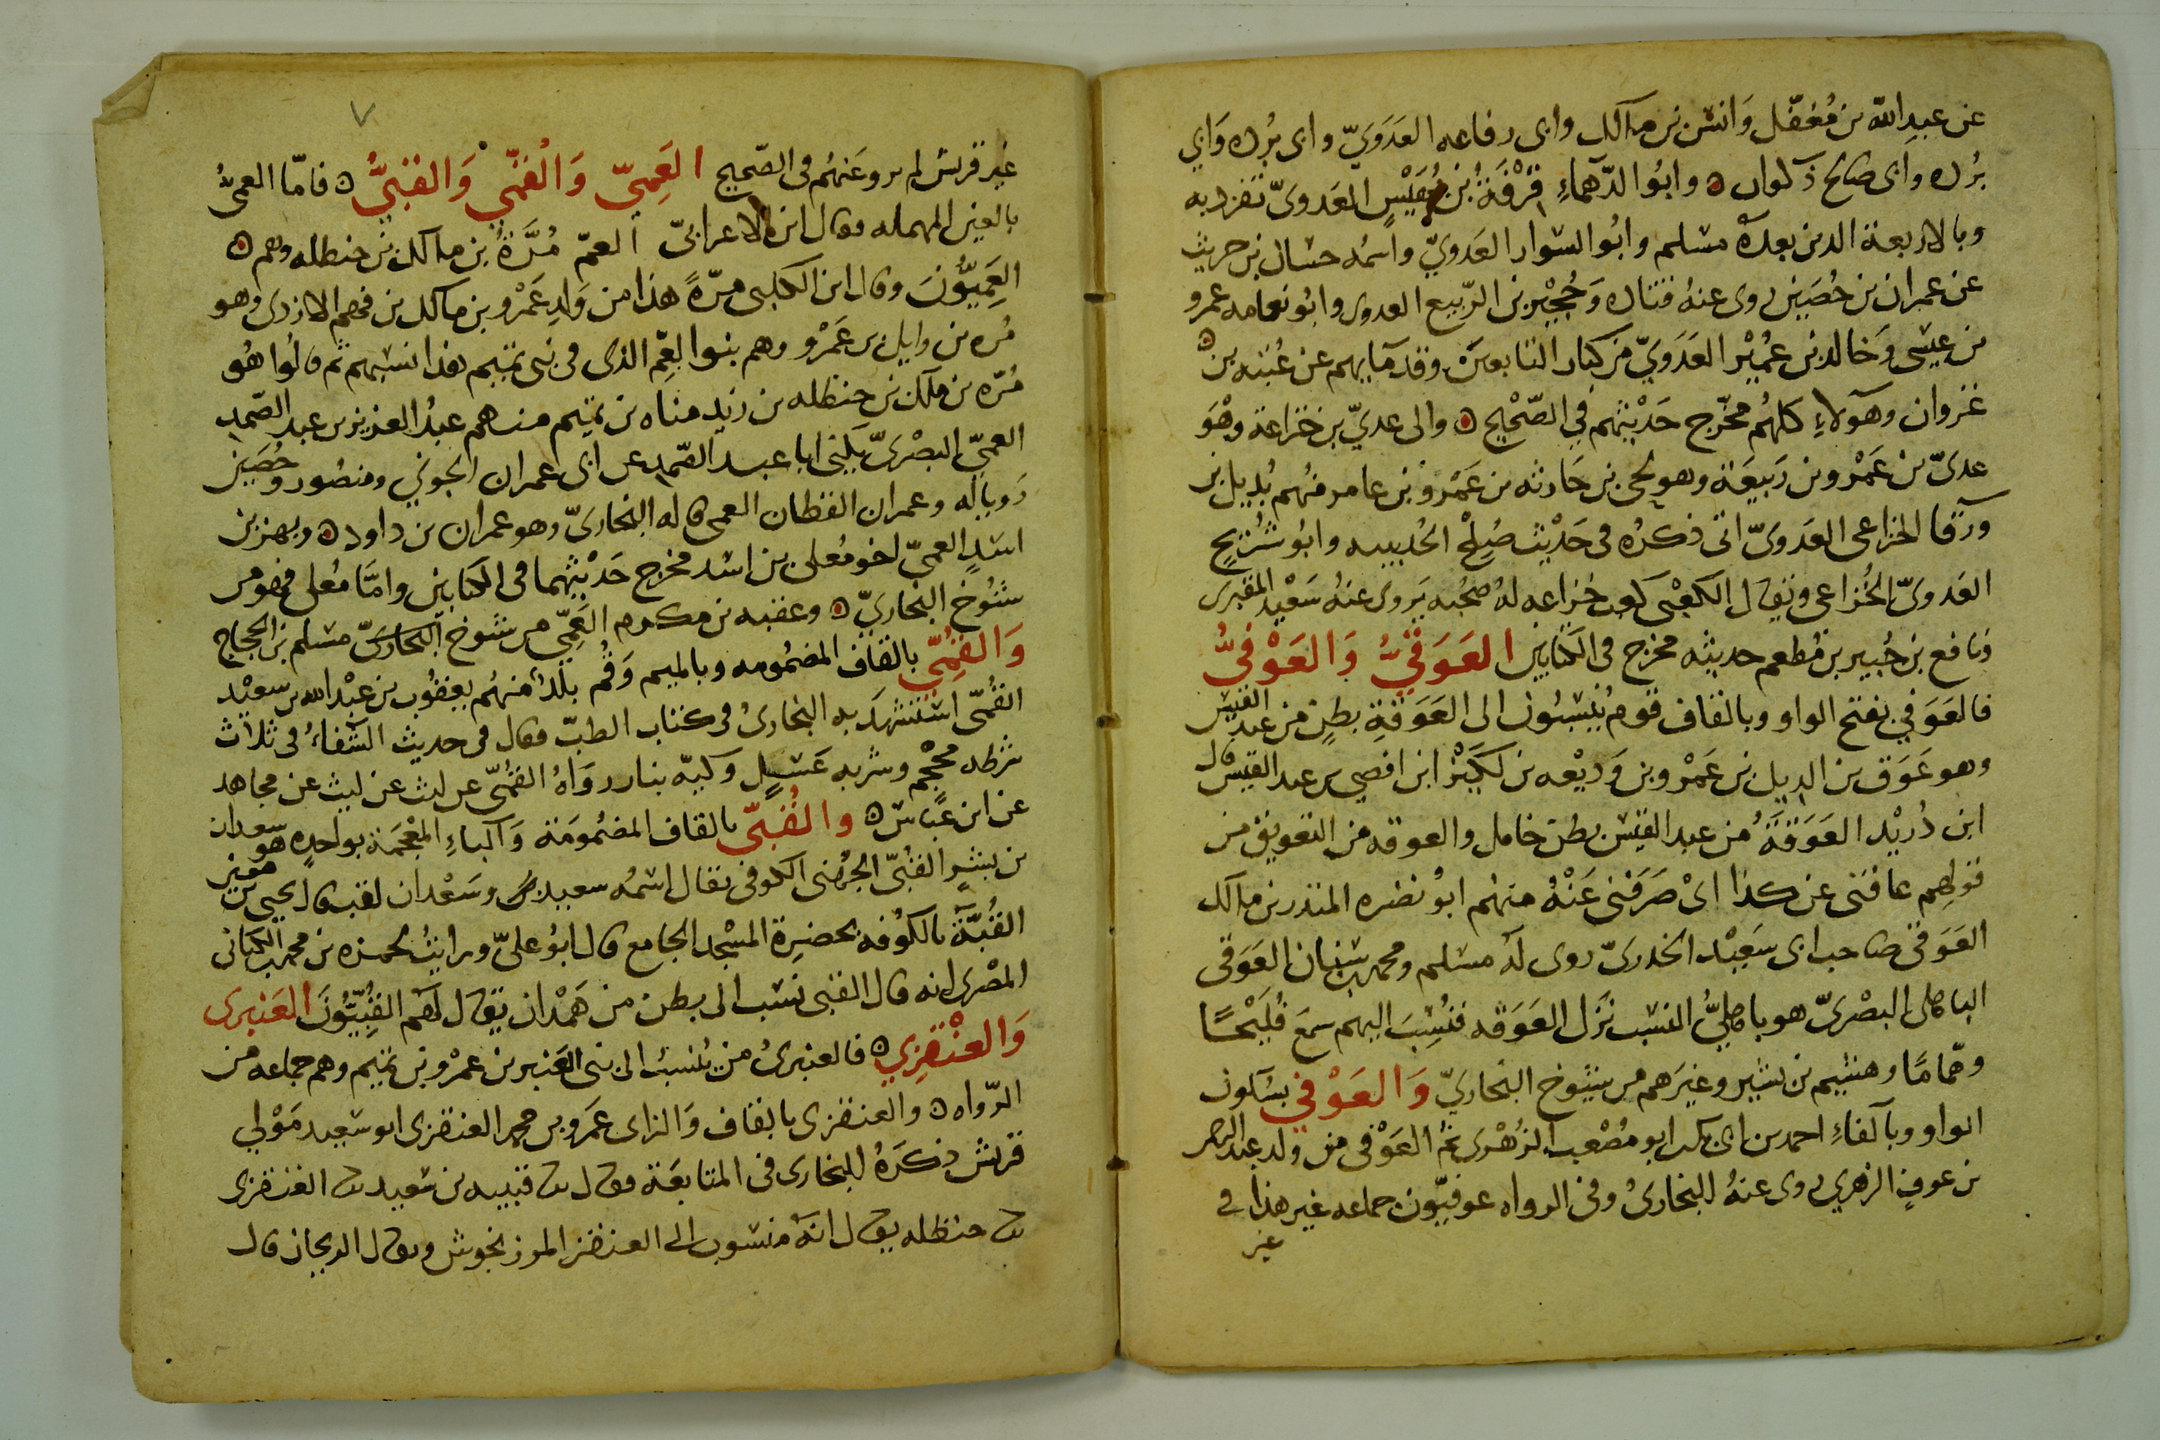 عن عبد الله بن مُغفّل وَانس بن مالك وابى رفاعه العَدَويّ وابى بُرده وَابي
بُرده وابى صالح ذكوان ٥ وابُوا الدّهماءِ قِرْفَةُ بن بُهَيْسٍ العَدوىّ تفرد به
وبالاربعة الدين بعدَهُ مسلم وابُو السَّوار العَدويّ واسمُه حسان بن حريث
عن عمران بن حُصَين روى عنهُ قتاده وَحُجَيْر بن الرّبيع العدوى وابُو نعامه عمرو
بن عيسَى وَخالد بن عُمَيْر العَدَويّ من كبار التابعين وقد مَا يهم عن عُتبه بن ٥
غزوان وهَولاءِ كلهُم مخرّج حَدْيثهم في الصّحْيح ٥ والى عديّ بن خزاعة وهْوَ
عدىّ بن عَمْرو بن رَبيعَة وهو لحى بن حَارثه بن عَمْرو بن عامر منهُم بُديل بن
ورَقا الخزاعى العَدَوىّ اتى ذكرُه فى حَدْيث صُلحْ الحُديبيه وابُو شُرَيح
العَدوىّ الخُزاعى ويُقال الكعْبى كعب خُزاعه لهُ صُحْبه يَروى عنهُ سَعْيد المقبرى
ونافع بن جُبير بن مُطعم حديثه مخرج فى الكتابين العَوَقيُّ وَالعَوْفيُّ
فالعَوَقي بفتح الواو وبالقاف قومُ يُنسبُون الى العَوَقةِ بطنٍ من عبد القيس
وهو عَوَق بن الديل بن عَمْرو بن وَديْعه بن لكَيْز ابن افصى بن عبد القيس قال
ابن دُرَيْد العَوَقَةُ من عبد القيس بطن خامل والعوقه من التعويق من
قولهم عاقنى عن كذا اىْ صَرَفنى عَنْهُ منهم ابُو نضره المنذر بن مالك
العَوَقى صاحب ابى سَعيْد الخدرىّ روى لهُ مسلم ومحمد بن سنان العَوَقى
الباهلى البَصْرىّ هو باهليُّ النسب نَزل العَوَقه فنُسِبَ اليهم سمعَ فُلَيْحًا
وهّمامًا وهشيم بن بشير وغيرَهم من شيوخ البخاريّ وَالعَوْفي بسَكون
الواو وبالفاءِ احمد بن ابى بكر ابو مُصْعب الزُهْرى ثم العَوْفى من ولد عبد الرحمن
بن عوفٍ الزهري روى عنهُ البخاريُ وفي الرواه عوفيّون جماعه غير هذا في
غير
٧
غير قريش لم يرو عَنهُم فى الصّحيح العَمِيّ وَالْقُمّي وَالقُبيُّ ٥ فامّا العميُّ
بالعين المهمله فقال ابن الاعرابىّ العمّ مُرَّةُ بن مالك بن حنظله وهم ٥
العَمِيُّونَ وقال ابن الكلبى مرّةً هذا من وَلدِ عَمْرو بن مالك بن فهم الازدى وهو
مُره بن وايل بن عَمْرو وهم بنوا العِّم الذى فى بنى تميم هذا نسبهم ثم قالُوا هُو
مُرّه بن مالك بن حنظله بن زيد مناه بن تميم منهم عبدُ العزيز بن عبد الصّمد
العميّ البصْرىّ يكنى ابا عبد الصّمد عن ابى عمران الجوني ومنصُور وحُصَين
رَويا له وعمران القطان العمى قاله البُخارىّ وهو عمران بن داود ٥ وبهز بن
اسَدٍ العميّ اخو مُعلى بن اسد مخرج حَدْيثهما فى الكتابين وامَّا مُعلى فهو من
شيُوخ البخاريّ ٥ وعقبه بن مكرم العَمِيّ من شيوخ البُخاريّ مسلم بن الحجاج
وَالقُمِيّ بالقاف المضمُومه وبالميم وَقُم بلد منهُم يعقوُب بن عبْد الله بن سعيْد
القُمّى استشهَد به البخاريُ فى كتاب الطبّ فقال فى حديث الشّفاءُ فى ثلاث
شرطه مِحْجم وشربه عَسَلٍ وكيّه بنار رواهُ القُمّى عن ليث عن مجاهد
عن ابن عبّاس ٥ والقُبّى بالقاف المضمُومَة وَالباءِ المعْجَمَة بواحِدِه هو سعدان
بن بشرٍ القُبّى الجُهَنى الكوفى يقال اسمُه سعيد وسَعْدان لقب قال يحيى بن معين
القُبّة بالكوُفه بحضرِة المسْجد الجامع قال ابُو علىّ ورايتُ لحمزه بن محمد الكنانى
المصْرى انه قال القبى نسب الى بطن من هَمْدان يقال لهم القُبِيّوُنَ العَنبرى
وَالعنْقزِي ٥ فالعنبرىُ من يُنسبُ الى بنى العَنبر بن عمْرو بن تميم وهم جماعه من
الرّواه ٥ والعنقزى بالقاف وَالزاى عَمرو بن محمد العنقزى ابو سَعيد مَوْلي
قريش ذكرَهُ البخارى فى المتابعَة فقال ثنا قتيبه بن سَعيد ثنا العنقزى
ثنا حنظله يقال انه منسُوب الى العنقز المرزنجوش ويقال الريحان قال